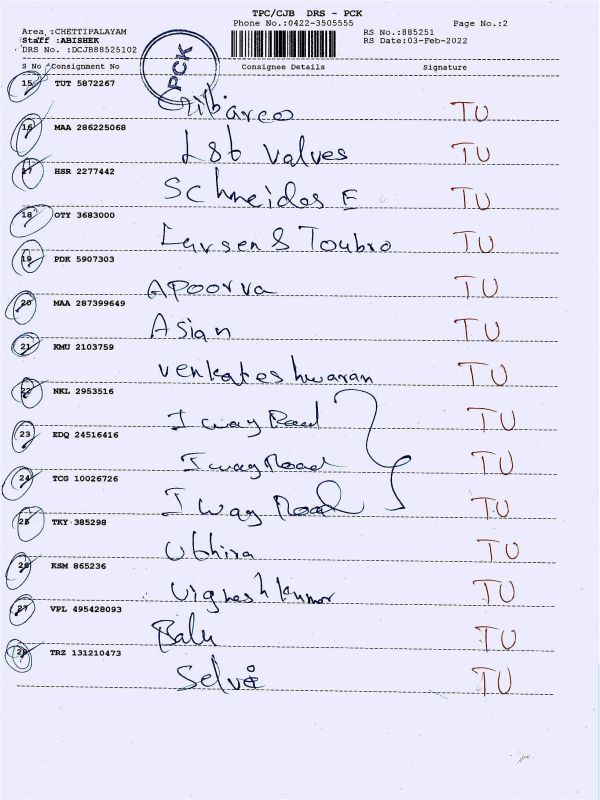 TPC/CJB DRS - PCK
Phone No.:0422-3505555 Page No.:2
Area :CHETTIPALAYAM RS No.:885251
Staff :ABISHEK RS Date:03-Feb-2022
DRS No. :DCJB88525102
PCK
S No Consignment No Consignee Details Signature
15 TUT 5872267
Gilbarco TU
16 MAA 286225068
L&b valves TU
17 HSR 2277442
Schneider E TU
18 OTY 3683000
Larsen & Toubro TU
19 PDK 5907303
Apoorva TU
20 MAA 287399649
Asian TU
21 KMU 2103759
venkateshwaran TU
22 NKL 2953516
I way Road TU
23 EDQ 24516416
I way Road TU
24 TCG 10026726
I Way Road TU
25 TKY 385298
TU
26 KSM 865236
Vignesh Kumar TU
27 VPL 495428093
Balu TU
28 TRZ 131210473
Selvi TU